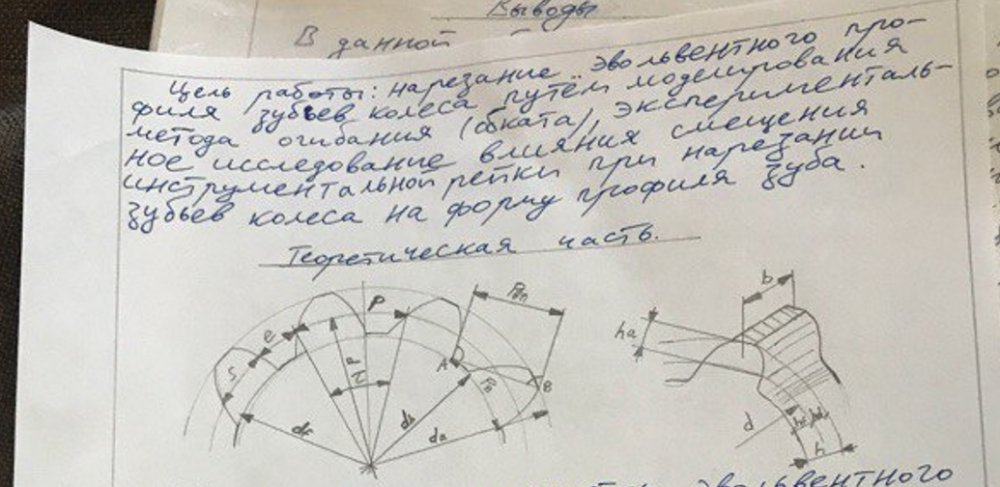 Выводы
В данной
Цель работы: нарезание эвольвентного про-
филя зубьев колеса путём моделирования
метода огибания (обката), эксперименталь-
ное исследование влияния смещения
инструментальной рейки при нарезании
зубьев колеса на форму профиля зуба.
Теоретическая часть.
P
e
S
A
B
b
ha
df
db
da
d
h
эвольвентного